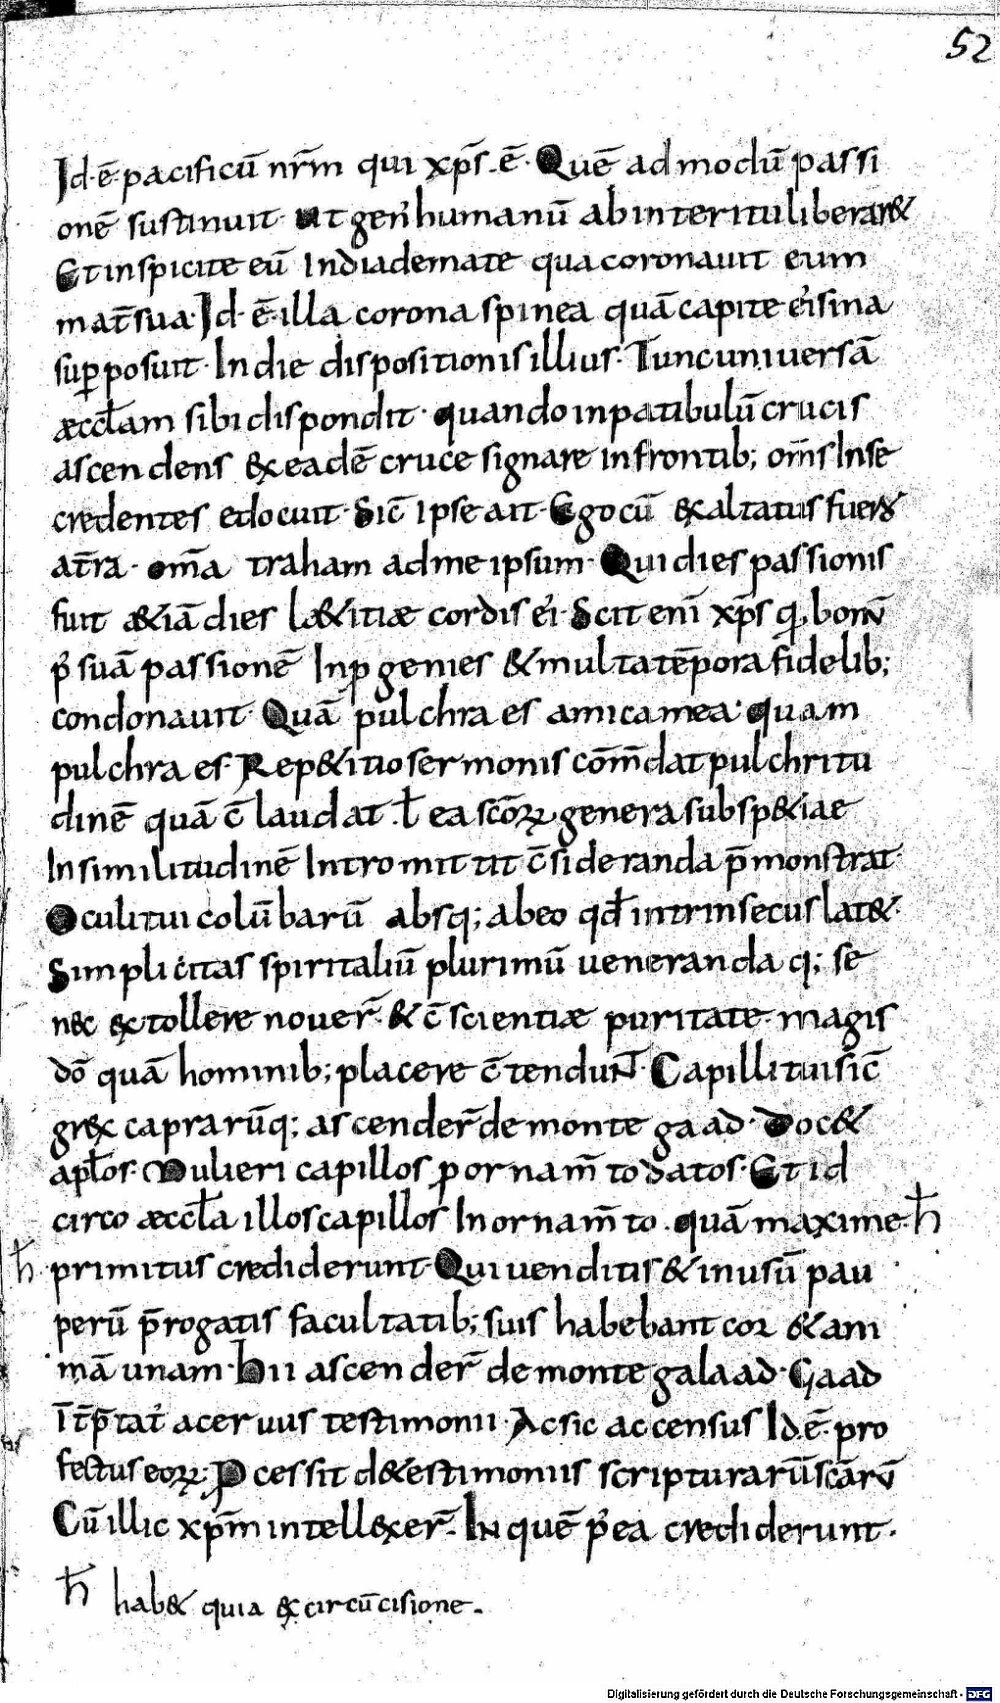 52
Id. ē. pacificū nr̄m qui xp̄s. ē. Quē ad modū passi
onē sustinuit. ut gen' humanū ab interitu liberar&
Et inspicite eū In diademate qua coronauit eum
mat̄ sua. Id. ē. illa corona spinea quā capite ei' sina
sup̱posuit. In die dispositionis illius. Tunc uniuersā
æccl̄am sibi dispondit. quando in patibulū crucis
ascendens & eadē cruce signare in frontib; om̄s In se
credentes edocuit. Sic̄ ipse ait. Ego cū exaltatus fuero
at̄ra. om̄a traham ad me ipsum. Qui dies passionis
fuit &iā dies l&itiæ cordis ei'. Scit eni xp̄s q bonū
p' suā passionē Inp̱genies & multa tēpora fidelib;
condonauit. Quā pulchra es amica mea. quam
pulchra es. Rep&itio sermonis com̄dat pulchritu
dinē quā c̄laudat. ł ea scōꝝ genera sub sp&iae
In similitudinē Intromittit c̄sideranda p̄monstrat.
Oculi tui colūbarū absq; ab eo qđ intrinsecus lat&.
Simplicitas spiritaliū plurimū ueneranda q; se
nec extollere nouer̄. & c̄scientiæ puritate magis
dō quā hominib; placere c̄tenduNT. Capilli tui sic̄
grex caprarū q; ascender̄ de monte gaad. Doc&
apłos. Mulieri capillos p̱ ornam̄to datos. Et id
circo æccl̄a illos capillos In ornam̄to. quā maxime. ħ
ħ primitus crediderunt. Qui uenditis & in usū pau
perū p̄rogatis facultatib; suis habebant cor & ani
mā unam. Hii ascender̄ de monte galaad. Gaad
īt̄p̄tat' aceruus testimonii. Ac sic accensus Id. ē. pro
fectus eoꝝ. P̱cessit d& estimoniis scripturarū scārū
Cū illic xp̄m intellexer̄. IN quē p' ea crediderunt.
ħ hab& quia & circūcisione.
Digitalisierung gefördert durch die Deutsche Forschungsgemeinschaft - DFG